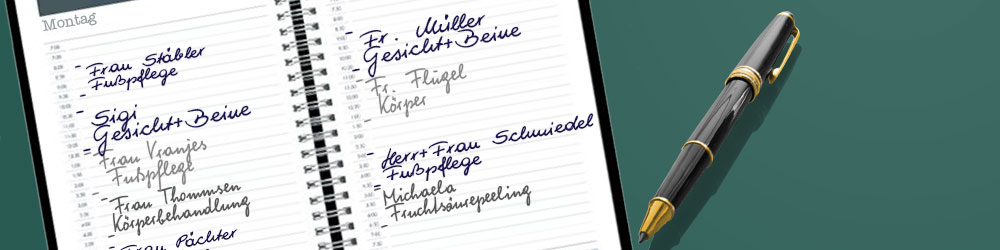 Montag
Frau Stäbler
Fußpflege
Sigi
Gesicht+Beine
Frau Vranjes
Fußpflege
Frau Thommsen
Körperbehandlung
Frau Pächter
Fr. Müller
Gesicht+Beine
Fr. Flügel
Körper
Herr+Frau Schmiedel
Fußpflege
Michaela
Fruchtsäurepeeling